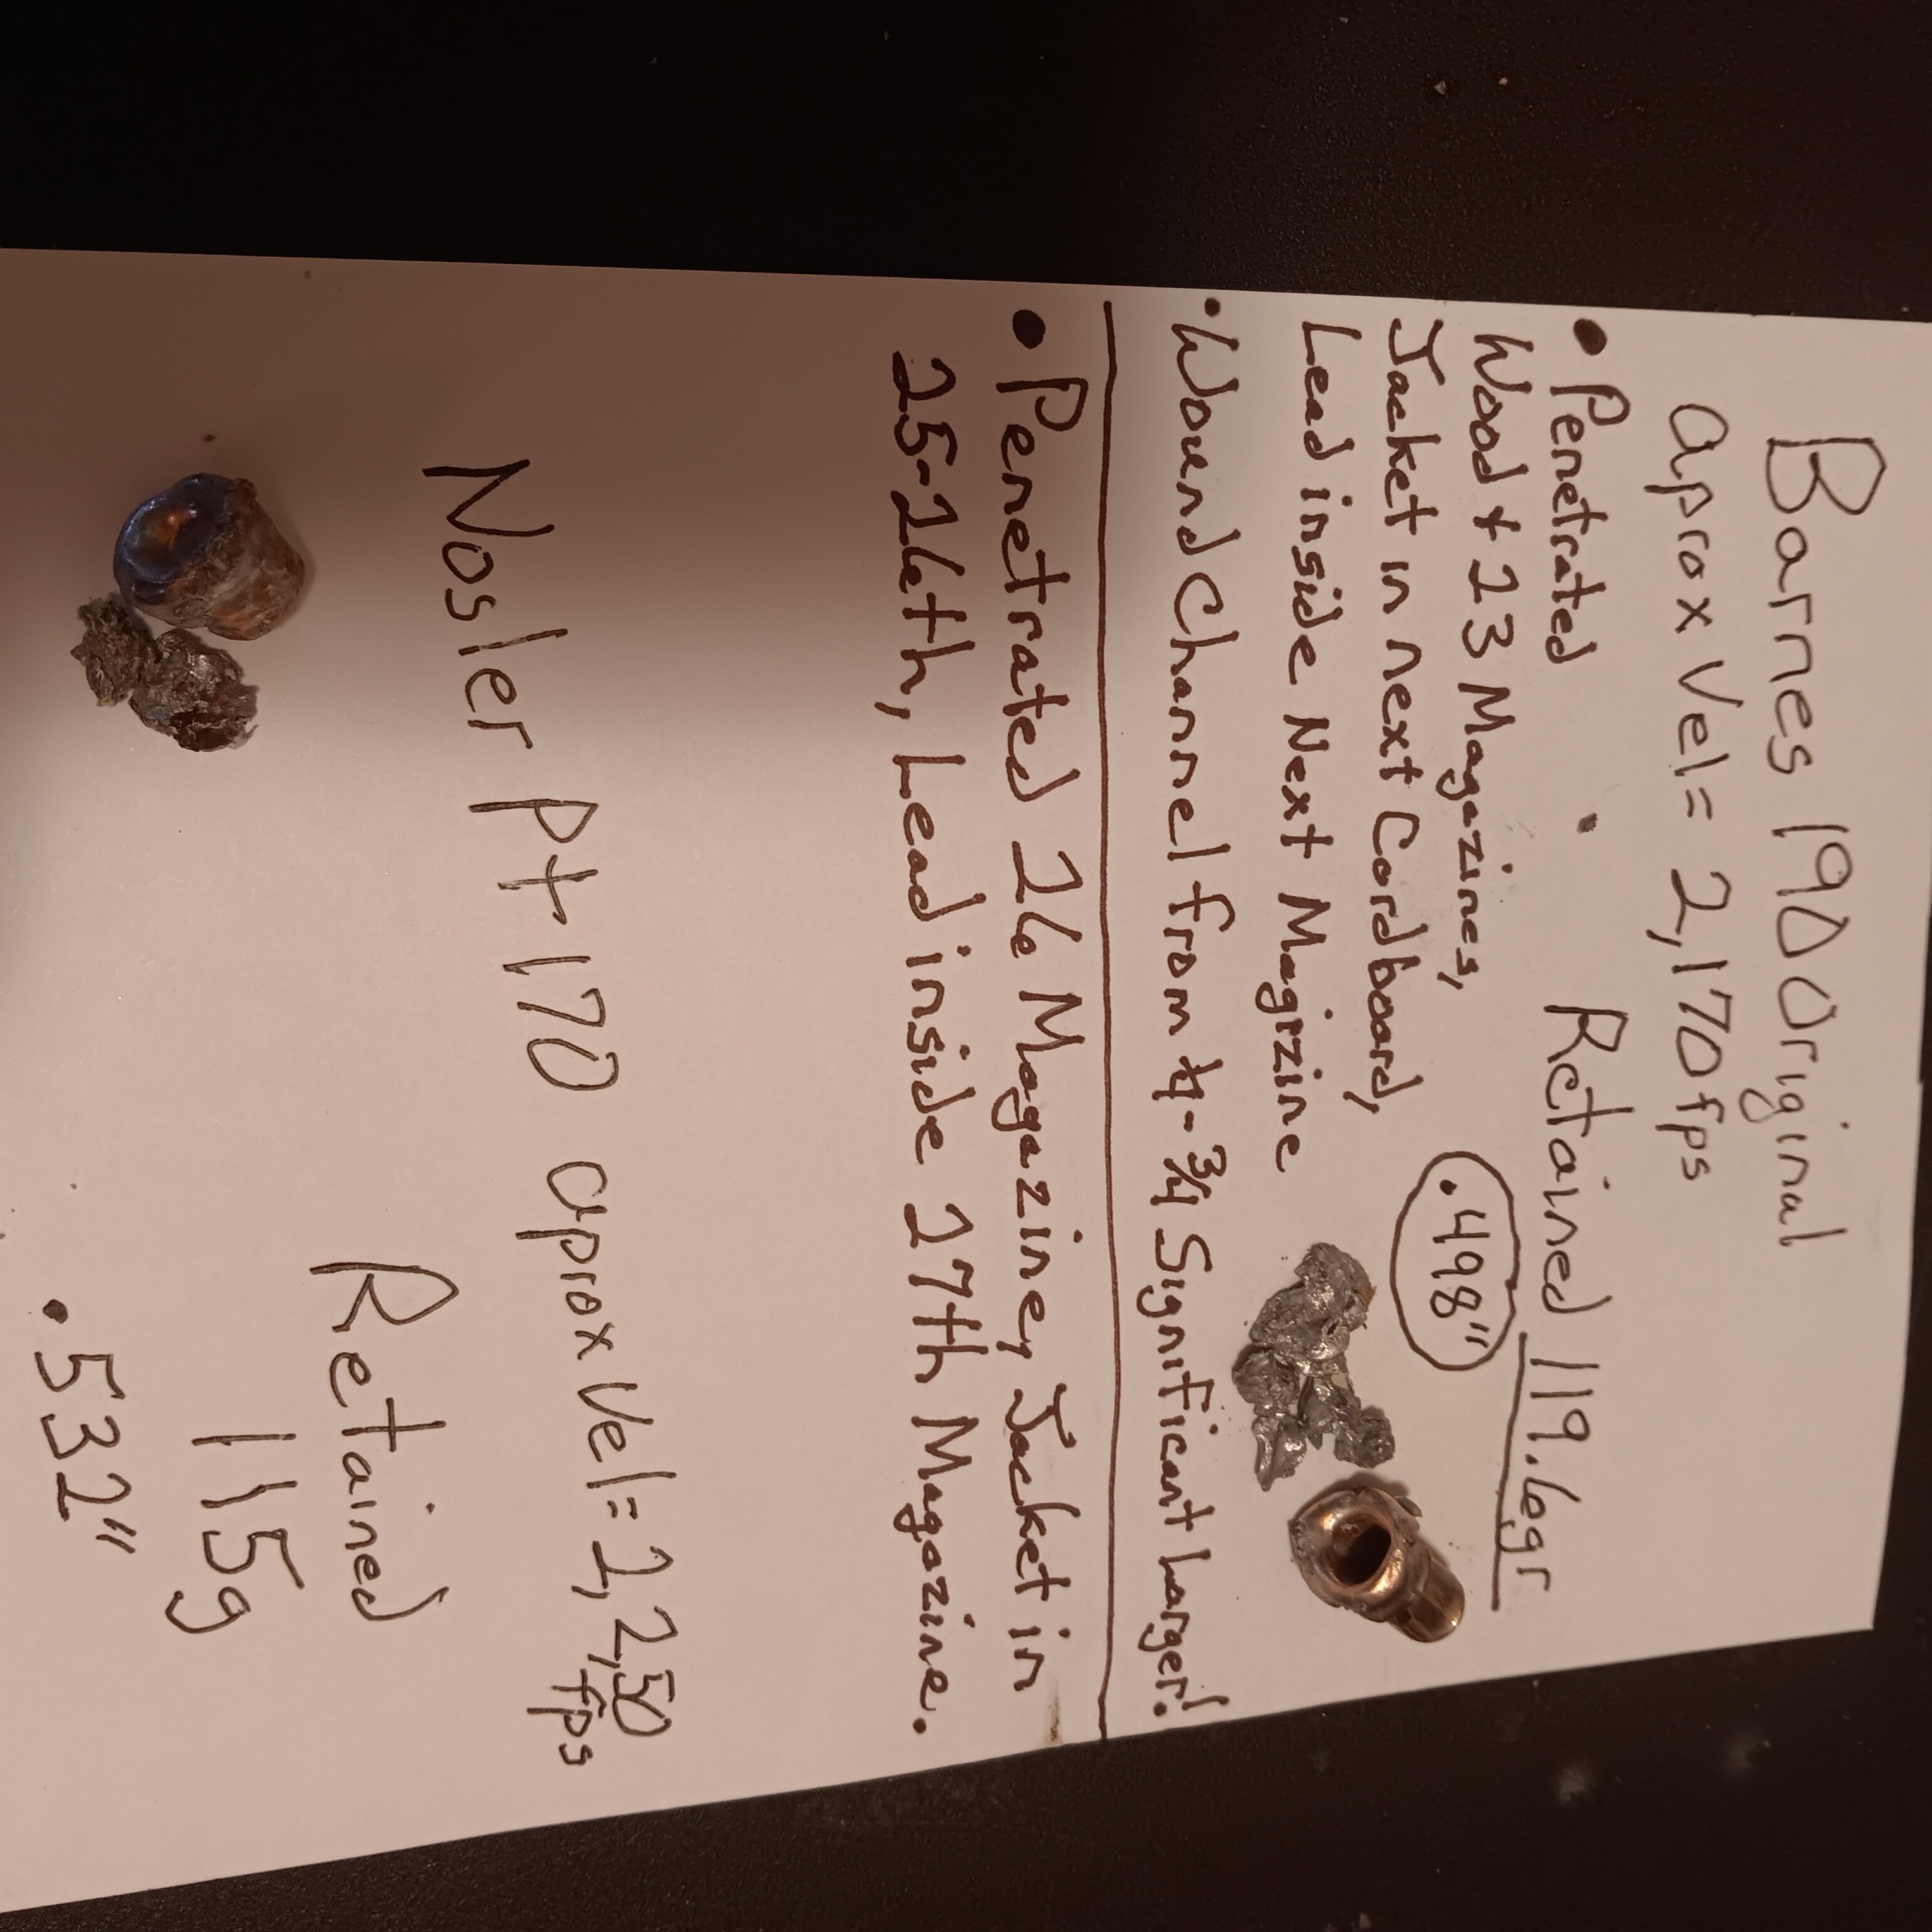 Barnes 190 Original
aprox Vel = 2,170 fps
• Penetrated Retained 119.6gr
Wood + 23 Magazines, .498"
Jacket in next Cardboard,
Lead inside Next Magizine
• Wound Channel from 4-3/4 Significant Larger!
• Penetrated 26 Magazines, Jacket in
25-26th, Lead inside 27th Magazine.
Nosler Pt 170 aprox Vel = 2,250
fps
Retained
115g
.532"